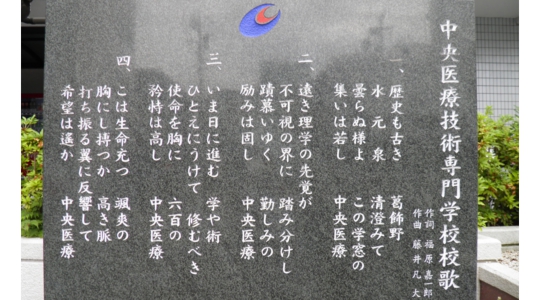 中央医療技術専門学校校歌
作詞 福原嘉一郎
作曲 藤井凡大
一、歴史も古き 葛飾野
水元泉 清澄みて
曇らぬ様よ この学窓の
集いは若し 中央医療
二、遠き理学の先覚が
不可視の界に 踏み分けし
蹟慕いゆく 勤しみの
励みは固し 中央医療
三、いま日に進む 学や術
ひとえにうけて 修むべき
使命を胸に 六百の
矜恃は高し 中央医療
四、こは生命充つ 颯爽の
胸にし搏つか 高き脈
打ち振る翼に反響して
希望は遥か 中央医療